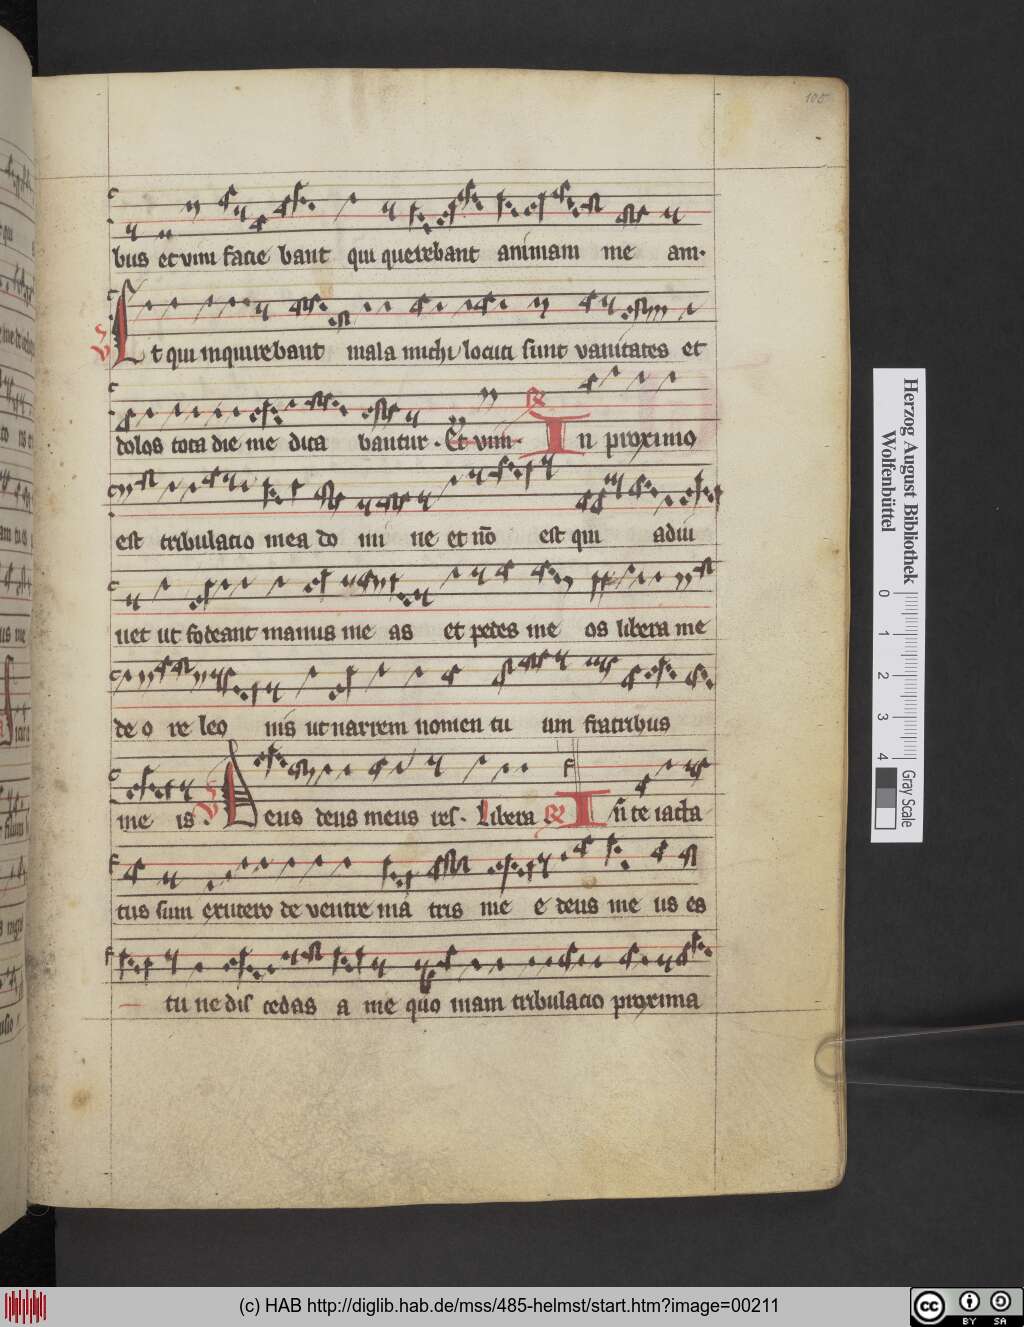 105
bus et vim facie bant qui querebant animam me am.
Et qui inquirebant mala michi locuti sunt vanitates et
dolos tota die me dita bantur. Et vim. In proximo
est tribulatio mea do mi ne et nō est qui adiu
uet ut fodeant manus me as et pedes me os libera me
de o re leo nis ut narrem nomen tu um fratribus
me is Deus deus meus res. Libera In te iacta
tus sum ex utero de ventre ma tris me e deus me us es
tu ne dis cedas a me quo niam tribulatio proxima
Herzog August Bibliothek
Wolfenbüttel
0 1 2 3 4
Gray Scale
(c) HAB http://diglib.hab.de/mss/485-helmst/start.htm?image=00211
cc BY SA